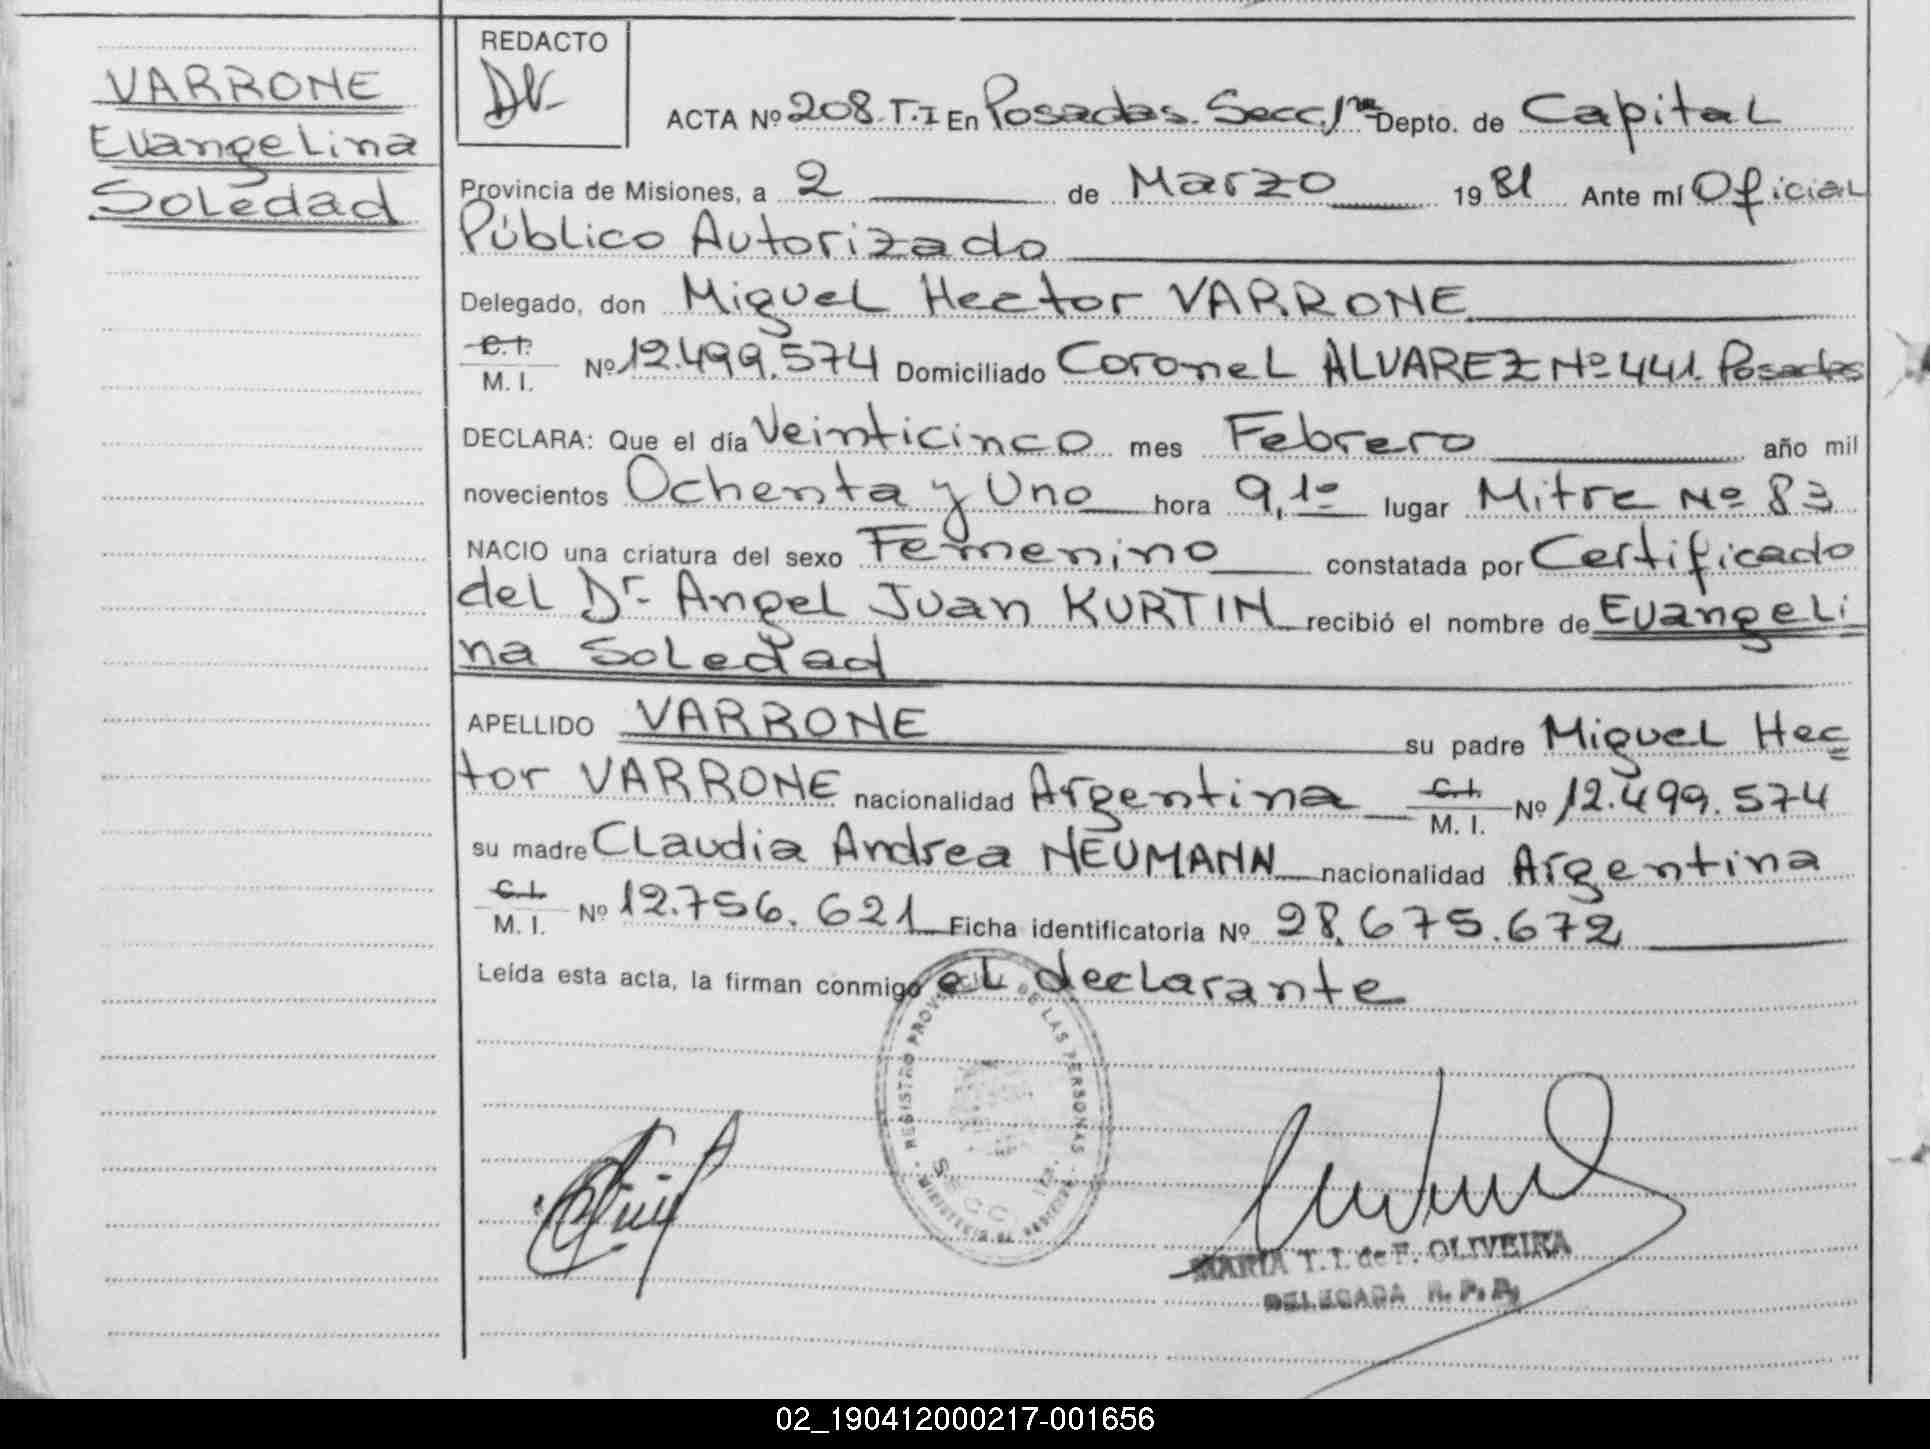 VARRONE
Evangelina
Soledad
REDACTO
ACTA Nº 208. T.I En Posadas. Secc. 1ra Depto. de Capital
Provincia de Misiones, a 2 de Marzo 1981 Ante mí Oficial
Público Autorizado
Delegado, don Miguel Hector VARRONE
C.I.
M. I. Nº 12.499.574 Domiciliado Coronel ALVAREZ Nº 441. Posadas
DECLARA: Que el día Veinticinco mes Febrero año mil
novecientos Ochenta y Uno hora 9,10 lugar Mitre Nº 83
NACIO una criatura del sexo Femenino constatada por Certificado
del Dr. Angel Juan KURTIN recibió el nombre de Evangeli
na Soledad
APELLIDO VARRONE su padre Miguel Hec
tor VARRONE nacionalidad Argentina C.I.
M. I. Nº 12.499.574
su madre Claudia Andrea NEUMANN nacionalidad Argentina
C.I.
M. I. Nº 12.756.621 Ficha identificatoria Nº 28.675.672
Leída esta acta, la firman conmigo el declarante
REGISTRO PROVINCIAL DE LAS PERSONAS
SECC. 1ra.
MARIA T. I. de F. OLIVEIRA
DELEGADA R. P. P.
02_190412000217-001656